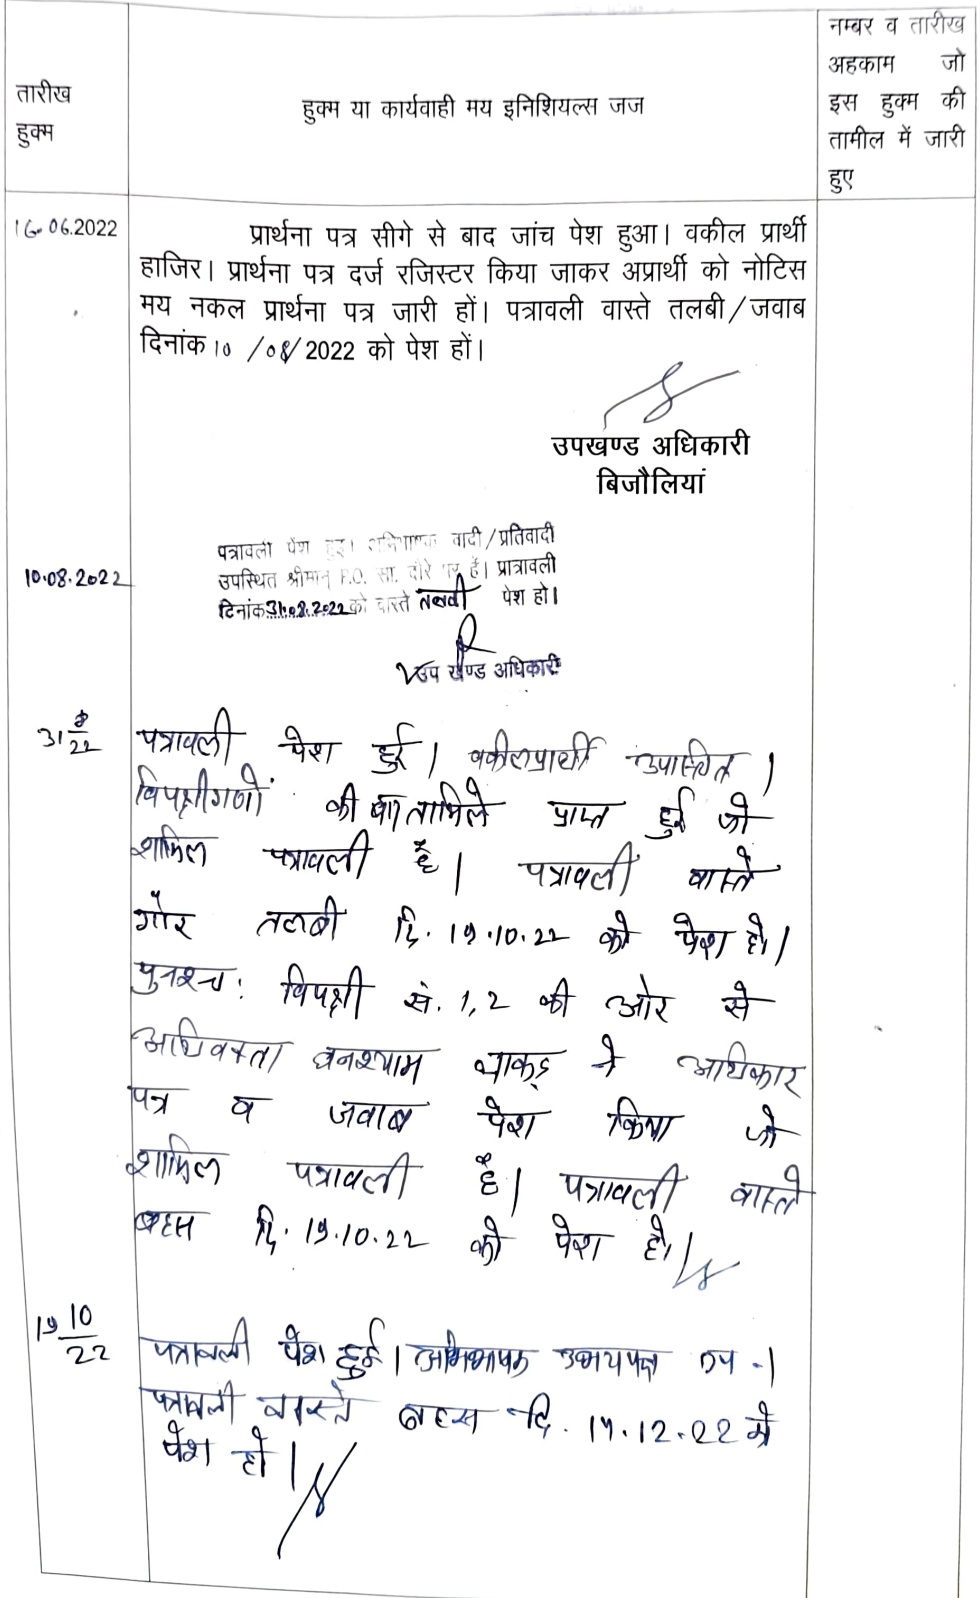 तारीख
हुक्म
हुक्म या कार्यवाही मय इनिशियल्स जज
नम्बर व तारीख
अहकाम जो
इस हुक्म की
तामील में जारी
हुए
16.06.2022
प्रार्थना पत्र सीगे से बाद जांच पेश हुआ। वकील प्रार्थी
हाजिर। प्रार्थना पत्र दर्ज रजिस्टर किया जाकर अप्रार्थी को नोटिस
मय नकल प्रार्थना पत्र जारी हों। पत्रावली वास्ते तलबी/जवाब
दिनांक 10 /08/2022 को पेश हों।
उपखण्ड अधिकारी
बिजौलियां
10.08.2022
पत्रावली पेश हुई। अभिभाषक वादी/प्रतिवादी
उपस्थित श्रीमान् P.O. सा. दौरे पर हैं। प्रात्रावली
दिनांक 31.08.2022 को वास्ते तलबी पेश हो।
उप खण्ड अधिकारी
31 8/22
पत्रावली पेश हुई। वकील प्रार्थी उपस्थित।
विपक्षीगणों की बाद तामिले प्राप्त हुई जो
शामिल पत्रावली है। पत्रावली वास्ते
गौर तलबी दि. 19.10.22 को पेश हो।
पुनश्च: विपक्षी सं. 1,2 की ओर से
अधिवक्ता घनश्याम धाकड़ ने अधिकार
पत्र व जवाब पेश किया जो
शामिल पत्रावली है। पत्रावली वास्ते
बहस दि. 19.10.22 को पेश हो।
19 10/22
पत्रावली पेश हुई। अभिभाषक उभयपक्ष उप -।
पत्रावली वास्ते बहस दि. 19.12.22 को
पेश हो।